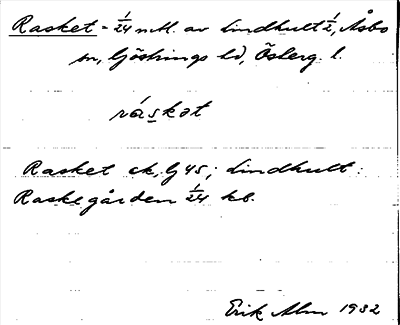 Rasket - 1/24 mtl. av Lindhult 1/2, Åsbo
sn, Göstrings hd, Österg. l.
ráskat
Rasket ek, bj 45; Lindhult:
Raskegården 1/24 kb.
Erik Alm 1932